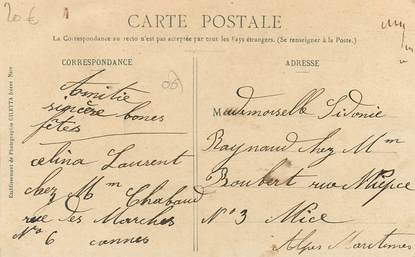 20 €
CARTE POSTALE
La Correspondance au recto n'est pas acceptée par tout les Pays étrangers. (Se renseigner à la Poste.)
CORRESPONDANCE
Amitie
sincère bones
fêtes
celina Laurent
chez Mm Chabaud
rue des Marches
No 6 cannes
ADRESSE
Mademoiselle Sidonie
Raynaud chez Mm
Boubert rue Niepce
No 3 Nice
Alpes Maritimes
Etablissement de Photographie GILETTA frères Nice